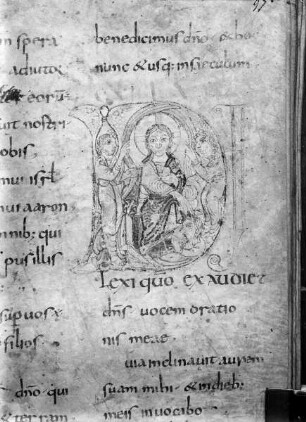 n spera
adiutor
eorū
uit nostri
obis,
mui isrl
mui aaron
mnib; qui
pusillis
sup uos &
filios.
dño, qui
& terram
benedicimus dño
nunc & usq; in saeculum
Dilexi quō exaudi&
dns vocem oratio
nis meae.
uia inclinauit aurem
suam mihi & indieb;
meis inuocabo